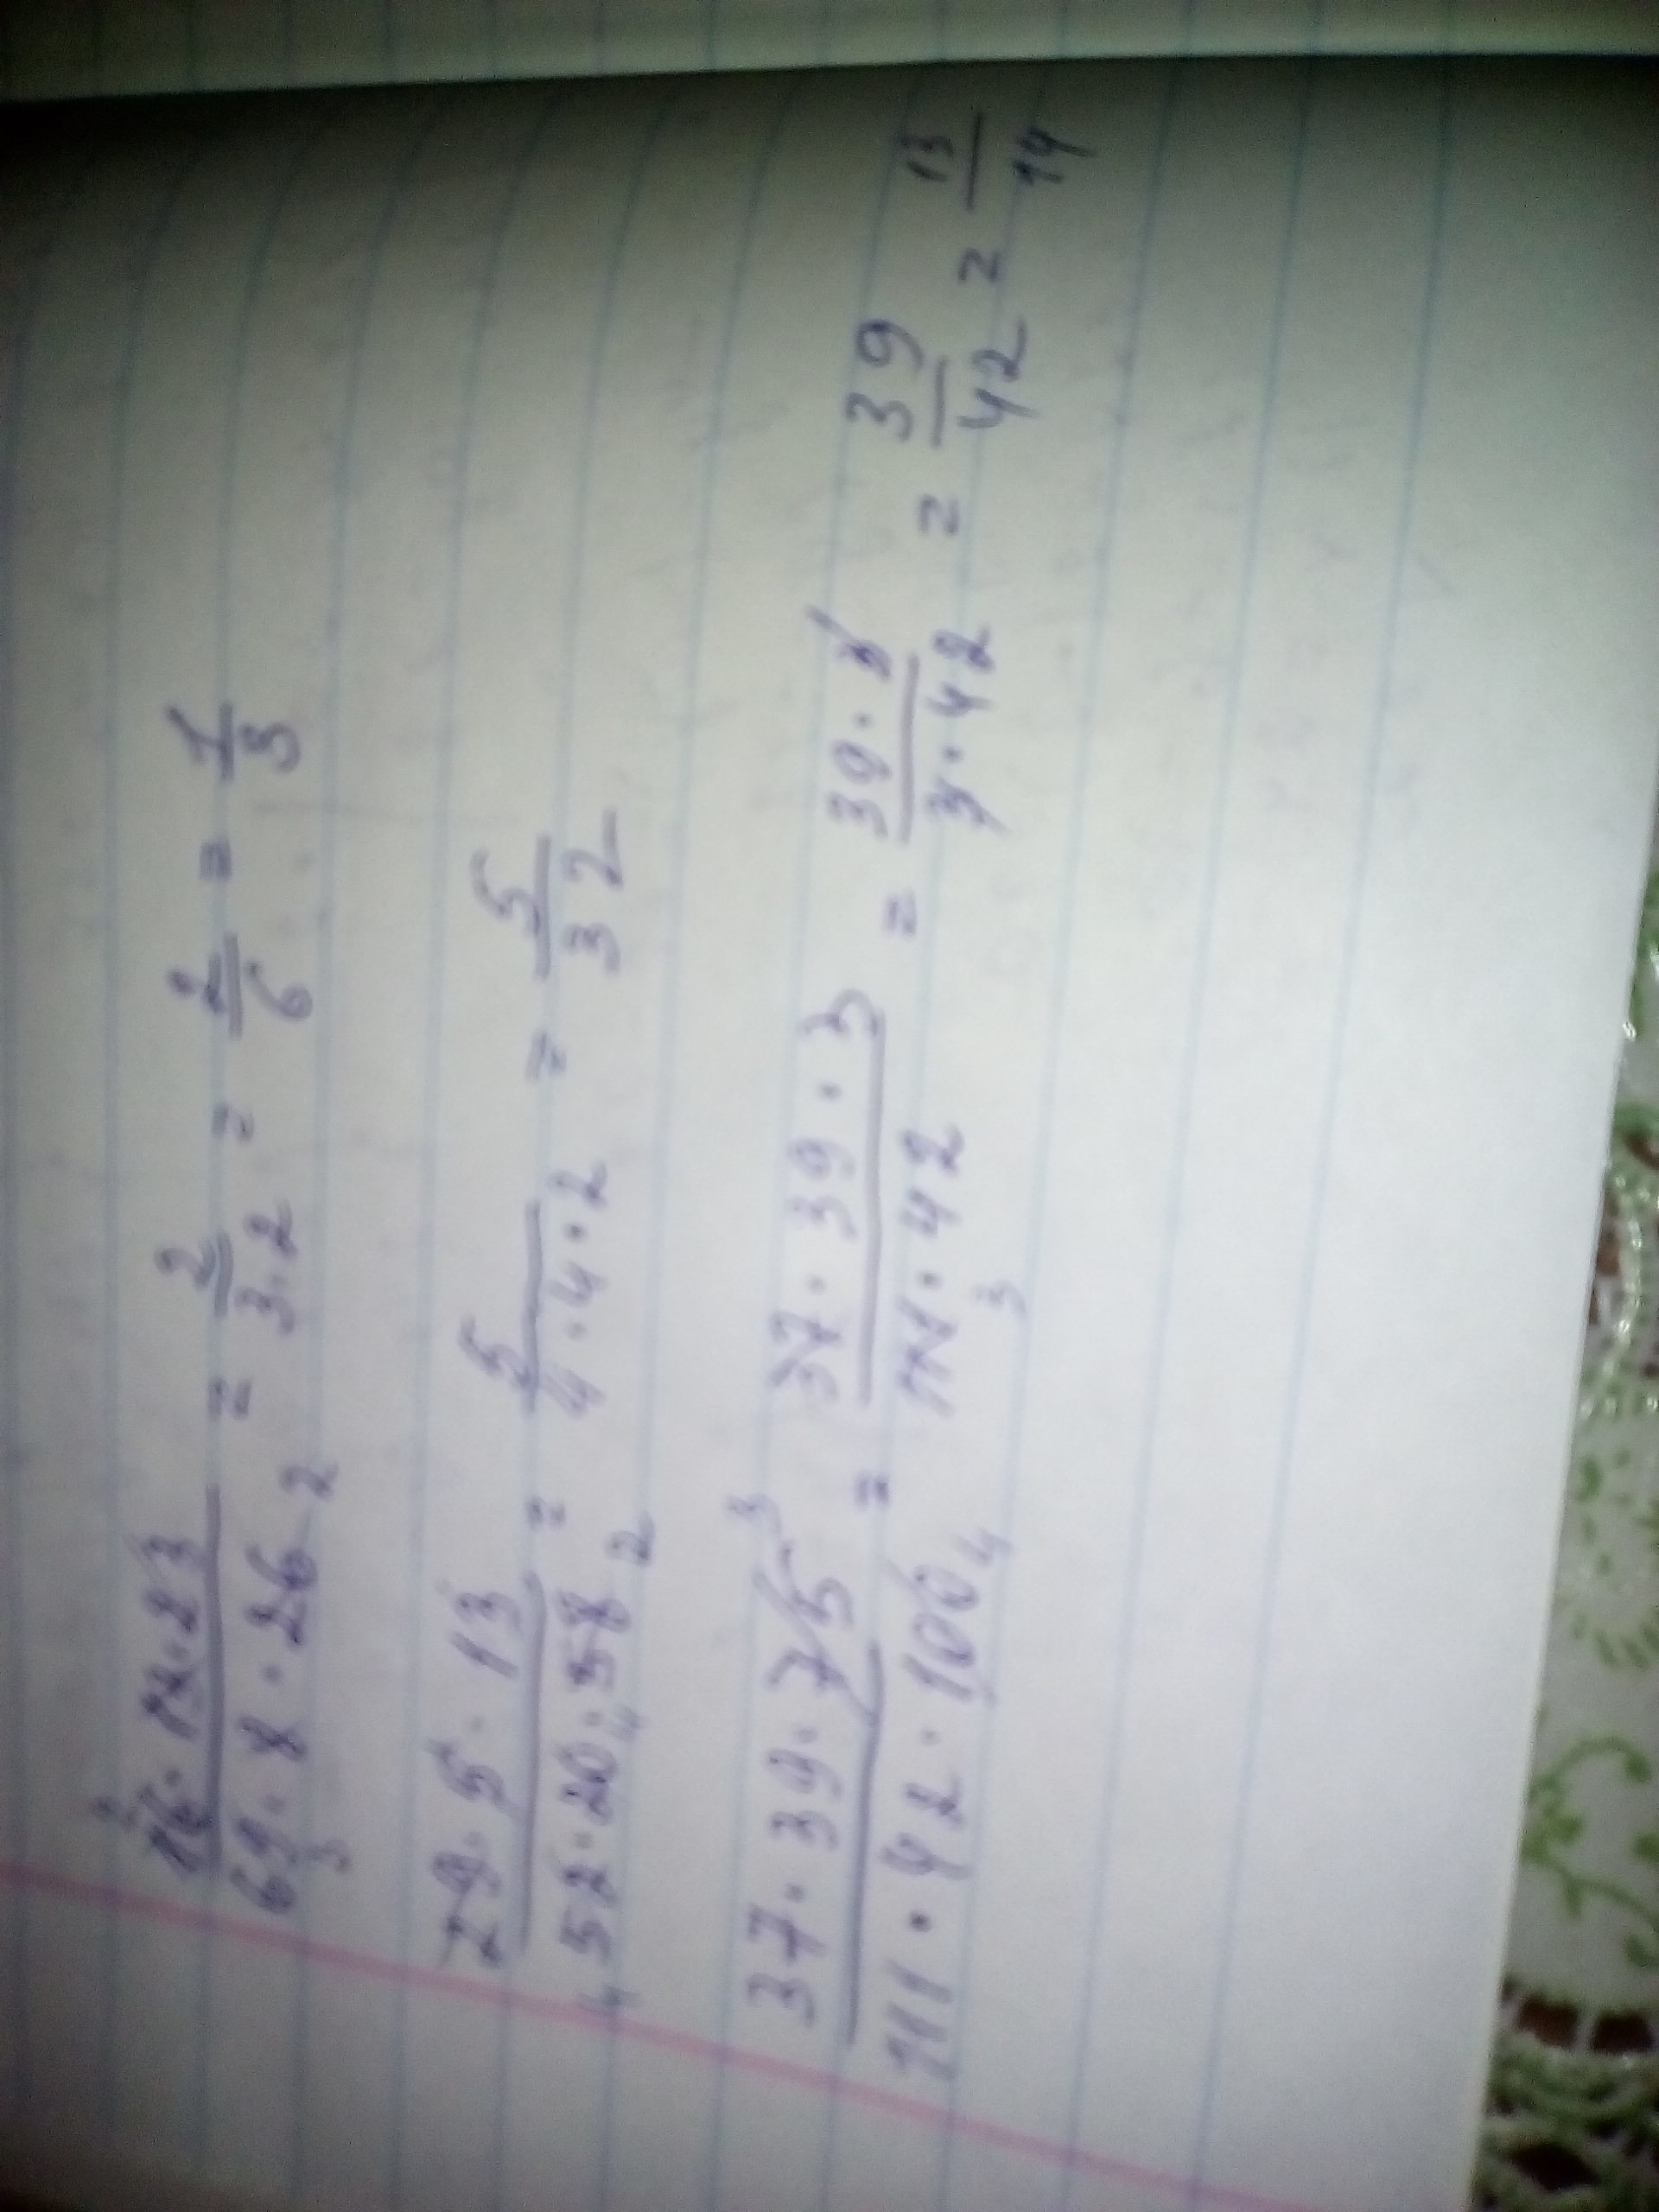 2
16·13·23 / 69·8·26 = 2 / 3·2 = 2/6 = 1/3
3 2
29·5·13 / 52·20·58 = 5 / 4·4·2 = 5/32
4 4 2
3
37·39·75 / 111·42·100 = 37·39·3 / 111·42 = 39·3 / 3·42 = 39/42 = 13/14
4 3